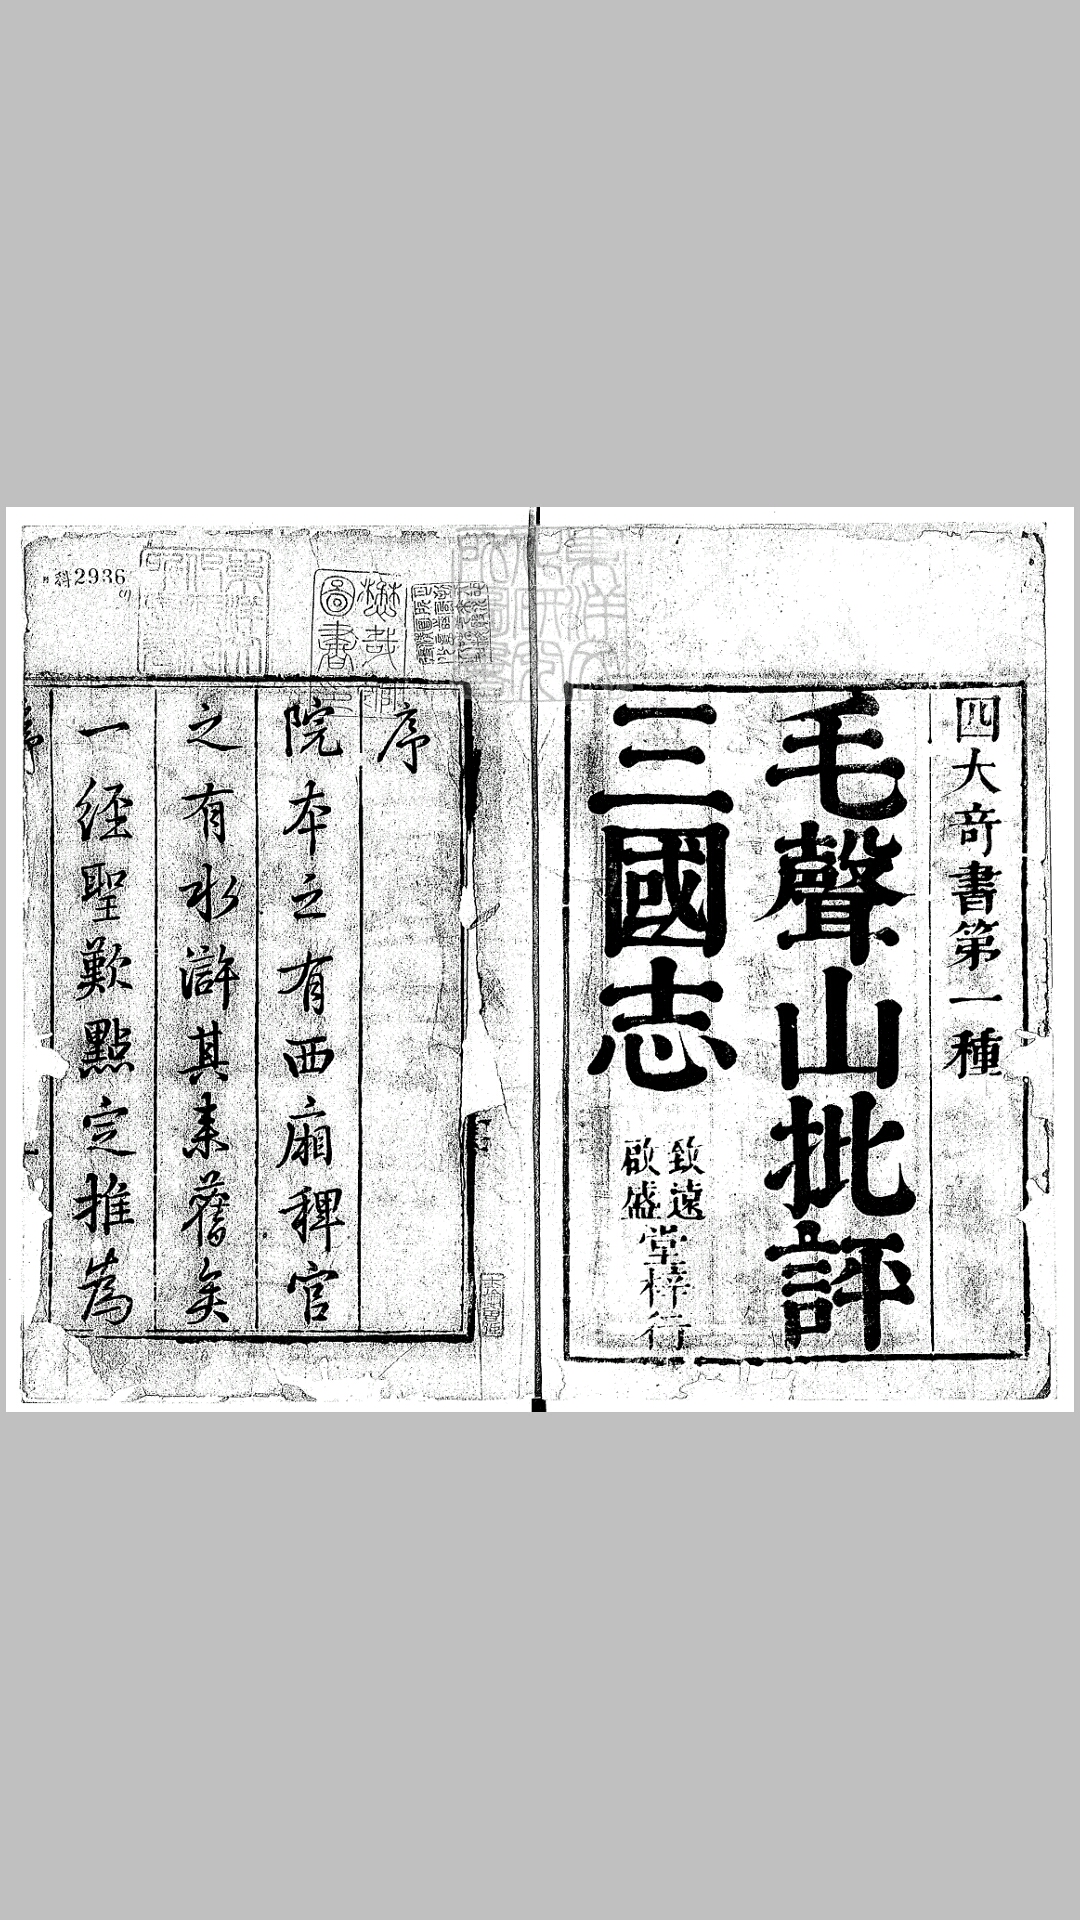 四大奇書第一種
毛聲山批評
三國志
致遠
啟盛
堂梓行
序
院本之有西廂稗官
之有水滸其来舊矣
一經聖歎點定推為
科2936
(1)